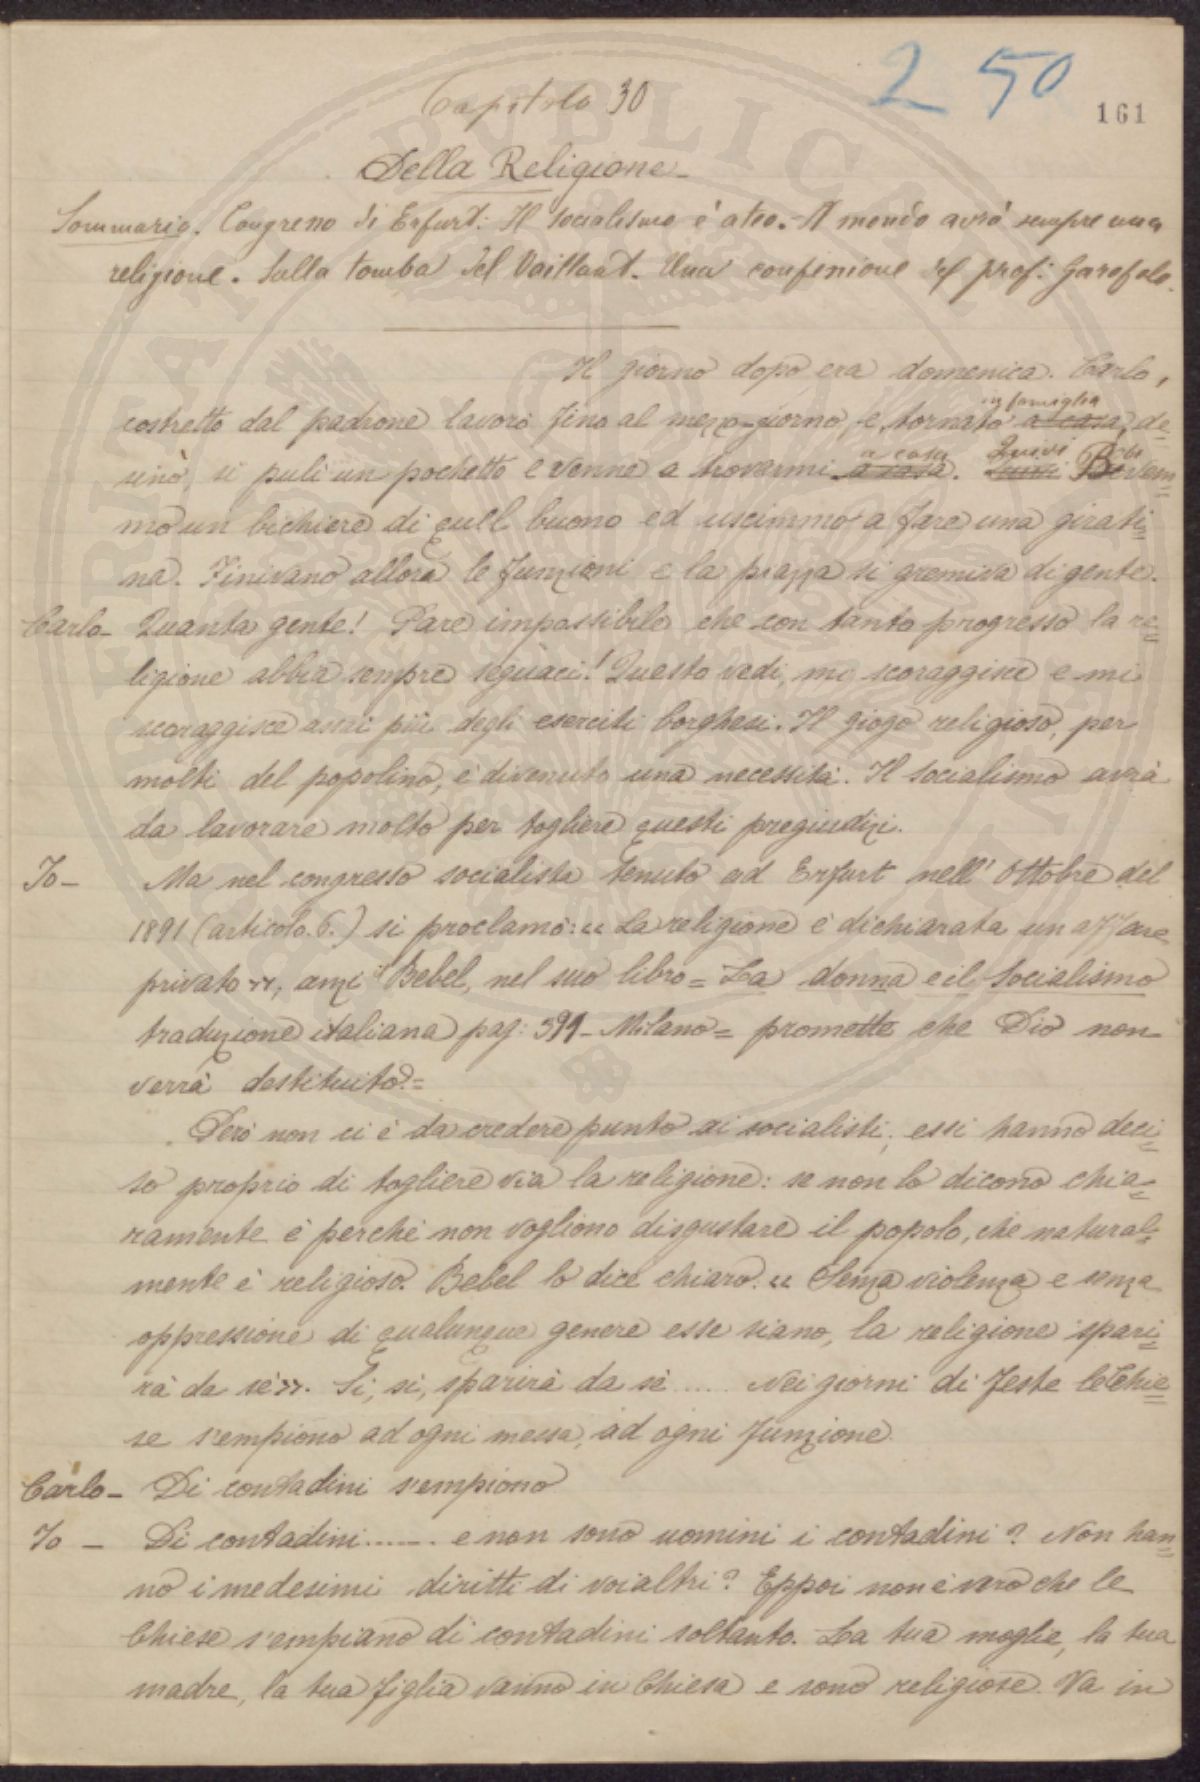 2 50
161
Capitolo 30
Della Religione
Sommario. Congresso di Erfurt: Il socialismo è ateo. - Il mondo avrà sempre una
religione. Sulla tomba del Vaillant. Una confessione del prof: Garofalo.
Il giorno dopo era domenica. Carlo,
in famiglia
costretto dal padrone lavorò fino al mezzogiorno, e, tornato a casa, de=
a casa Quivi
sinò, si pulì un pochetto e venne a trovarmi a casa. Quivi Bevem=
mo un bichiere di quell buono ed uscimmo a fare una girati=
na. Finivano allora le funzioni e la piazza si gremiva di gente.
Carlo - Quanta gente! Pare impossibile che con tanto progresso la re=
ligione abbia sempre seguaci! Questo vedi, mi scoraggisce e mi
scoraggisce assai più degli eserciti borghesi. Il giogo religioso, per
molti del popolino, è divenuto una necessità. Il socialismo avrà
da lavorare molto per togliere questi pregiudizi.
Io - Ma nel congresso socialista tenuto ad Erfurt nell' ottobre del
1891 (articolo. 6.) si proclamò: « La religione è dichiarata un affare
privato », anzi Bebel, nel suo libro = La donna e il Socialismo
traduzione italiana pag: 391 - Milano = promette che Dio non
verrà destituito. =
Però non ci è da credere punto ai socialisti; essi hanno deci=
so proprio di togliere via la religione: se non lo dicono chia=
ramente è perchè non vogliono disgustare il popolo, che natural=
mente è religioso. Bebel lo dice chiaro. « Senza violenza e senza
oppressione di qualunque genere esse siano, la religione spari=
rà da sè ». Si, si, sparirà da sè ..... Nei giorni di feste le Chie=
se s'empiono ad ogni messa, ad ogni funzione.
Carlo - Di contadini s'empiono
Io - Di contadini....... e non sono uomini i contadini? Non han=
no i medesimi diritti di voialtri? Eppoi non è vero che le
Chiese s'empiano di contadini soltanto. La tua moglie, la tua
madre, la tua figlia vanno in Chiesa e sono religiose. Va in